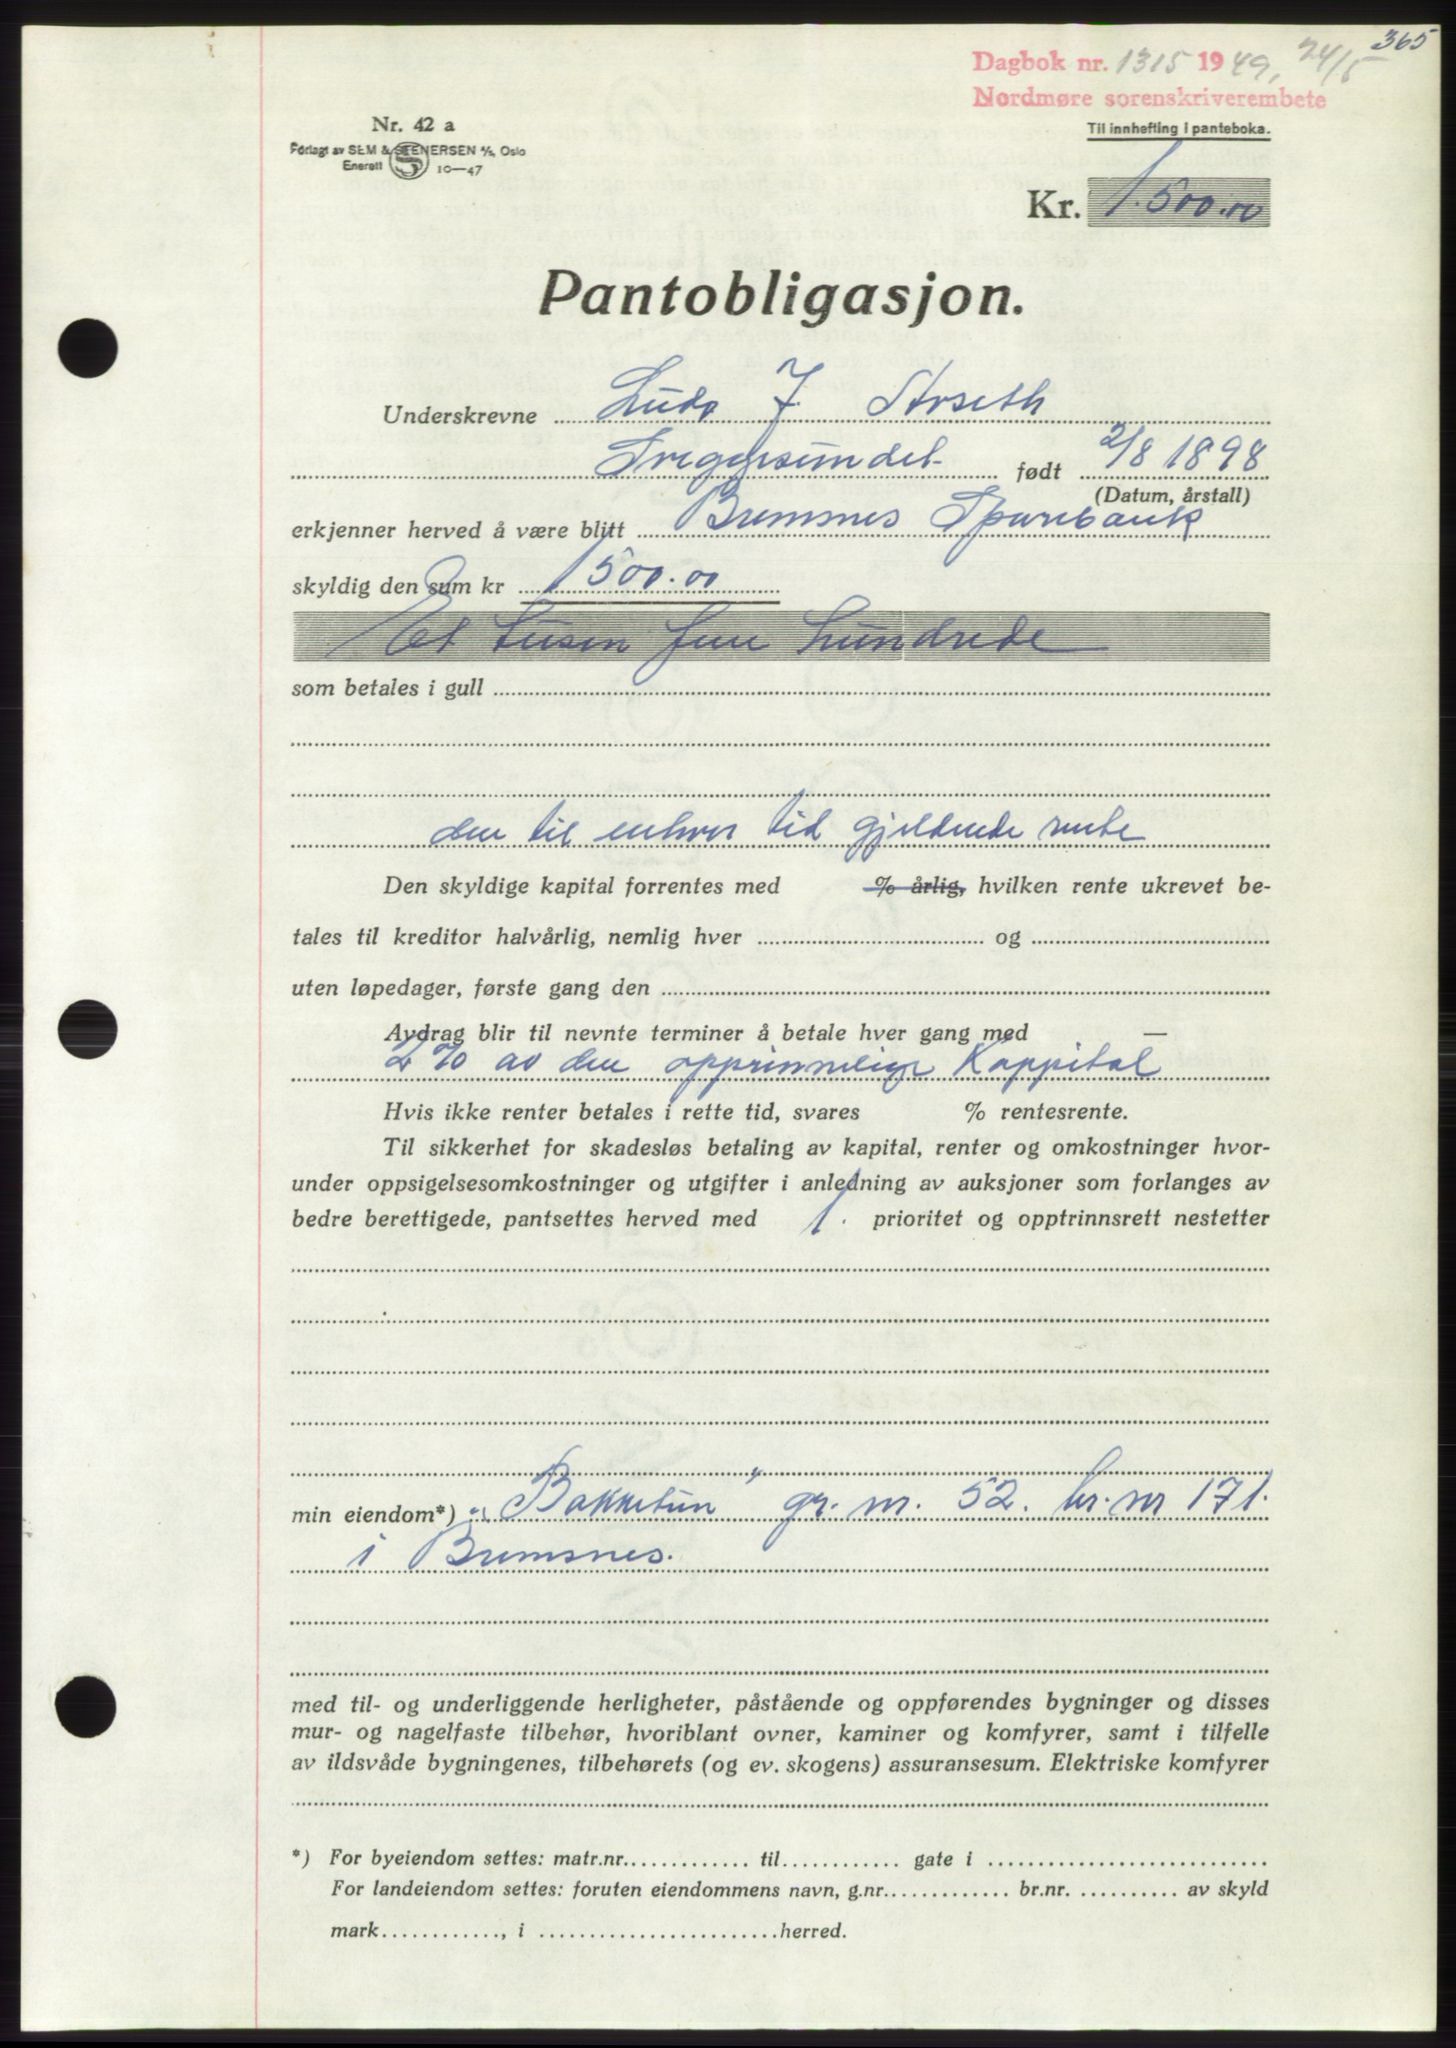 365
Dagbok nr. 1315 1949, 24/5
Nordmøre sorenskriverembete
Nr. 42 a
Forlagt av SEM & STENERSEN A/S, Oslo
Enerett S 10—47
Til innhefting i panteboka.
Kr. 1.500.00
Pantobligasjon.
Underskrevne J. Storseth
født 2/8 1898
(Datum, årstall)
erkjenner herved å være blitt Bremsnes Sparebank
skyldig den sum kr 1500.00
Et tusen fem hundrede
som betales i gull
den til enhver tid gjeldende rente
Den skyldige kapital forrentes med % årlig, hvilken rente ukrevet be-
tales til kreditor halvårlig, nemlig hver og
uten løpedager, første gang den
Avdrag blir til nevnte terminer å betale hver gang med —
2 % av den opprinnelige Kappital
Hvis ikke renter betales i rette tid, svares % rentesrente.
Til sikkerhet for skadesløs betaling av kapital, renter og omkostninger hvor-
under oppsigelsesomkostninger og utgifter i anledning av auksjoner som forlanges av
bedre berettigede, pantsettes herved med 1. prioritet og opptrinnsrett nestetter
min eiendom*) "Bakketun" gr. nr. 52. br. nr 171.
i Bremsnes.
med til- og underliggende herligheter, påstående og oppførendes bygninger og disses
mur- og nagelfaste tilbehør, hvoriblant ovner, kaminer og komfyrer, samt i tilfelle
av ildsvåde bygningenes, tilbehørets (og ev. skogens) assuransesum. Elektriske komfyrer
*) For byeiendom settes: matr.nr. til gate i
For landeiendom settes: foruten eiendommens navn, g.nr. br.nr. av skyld
mark, i herred.